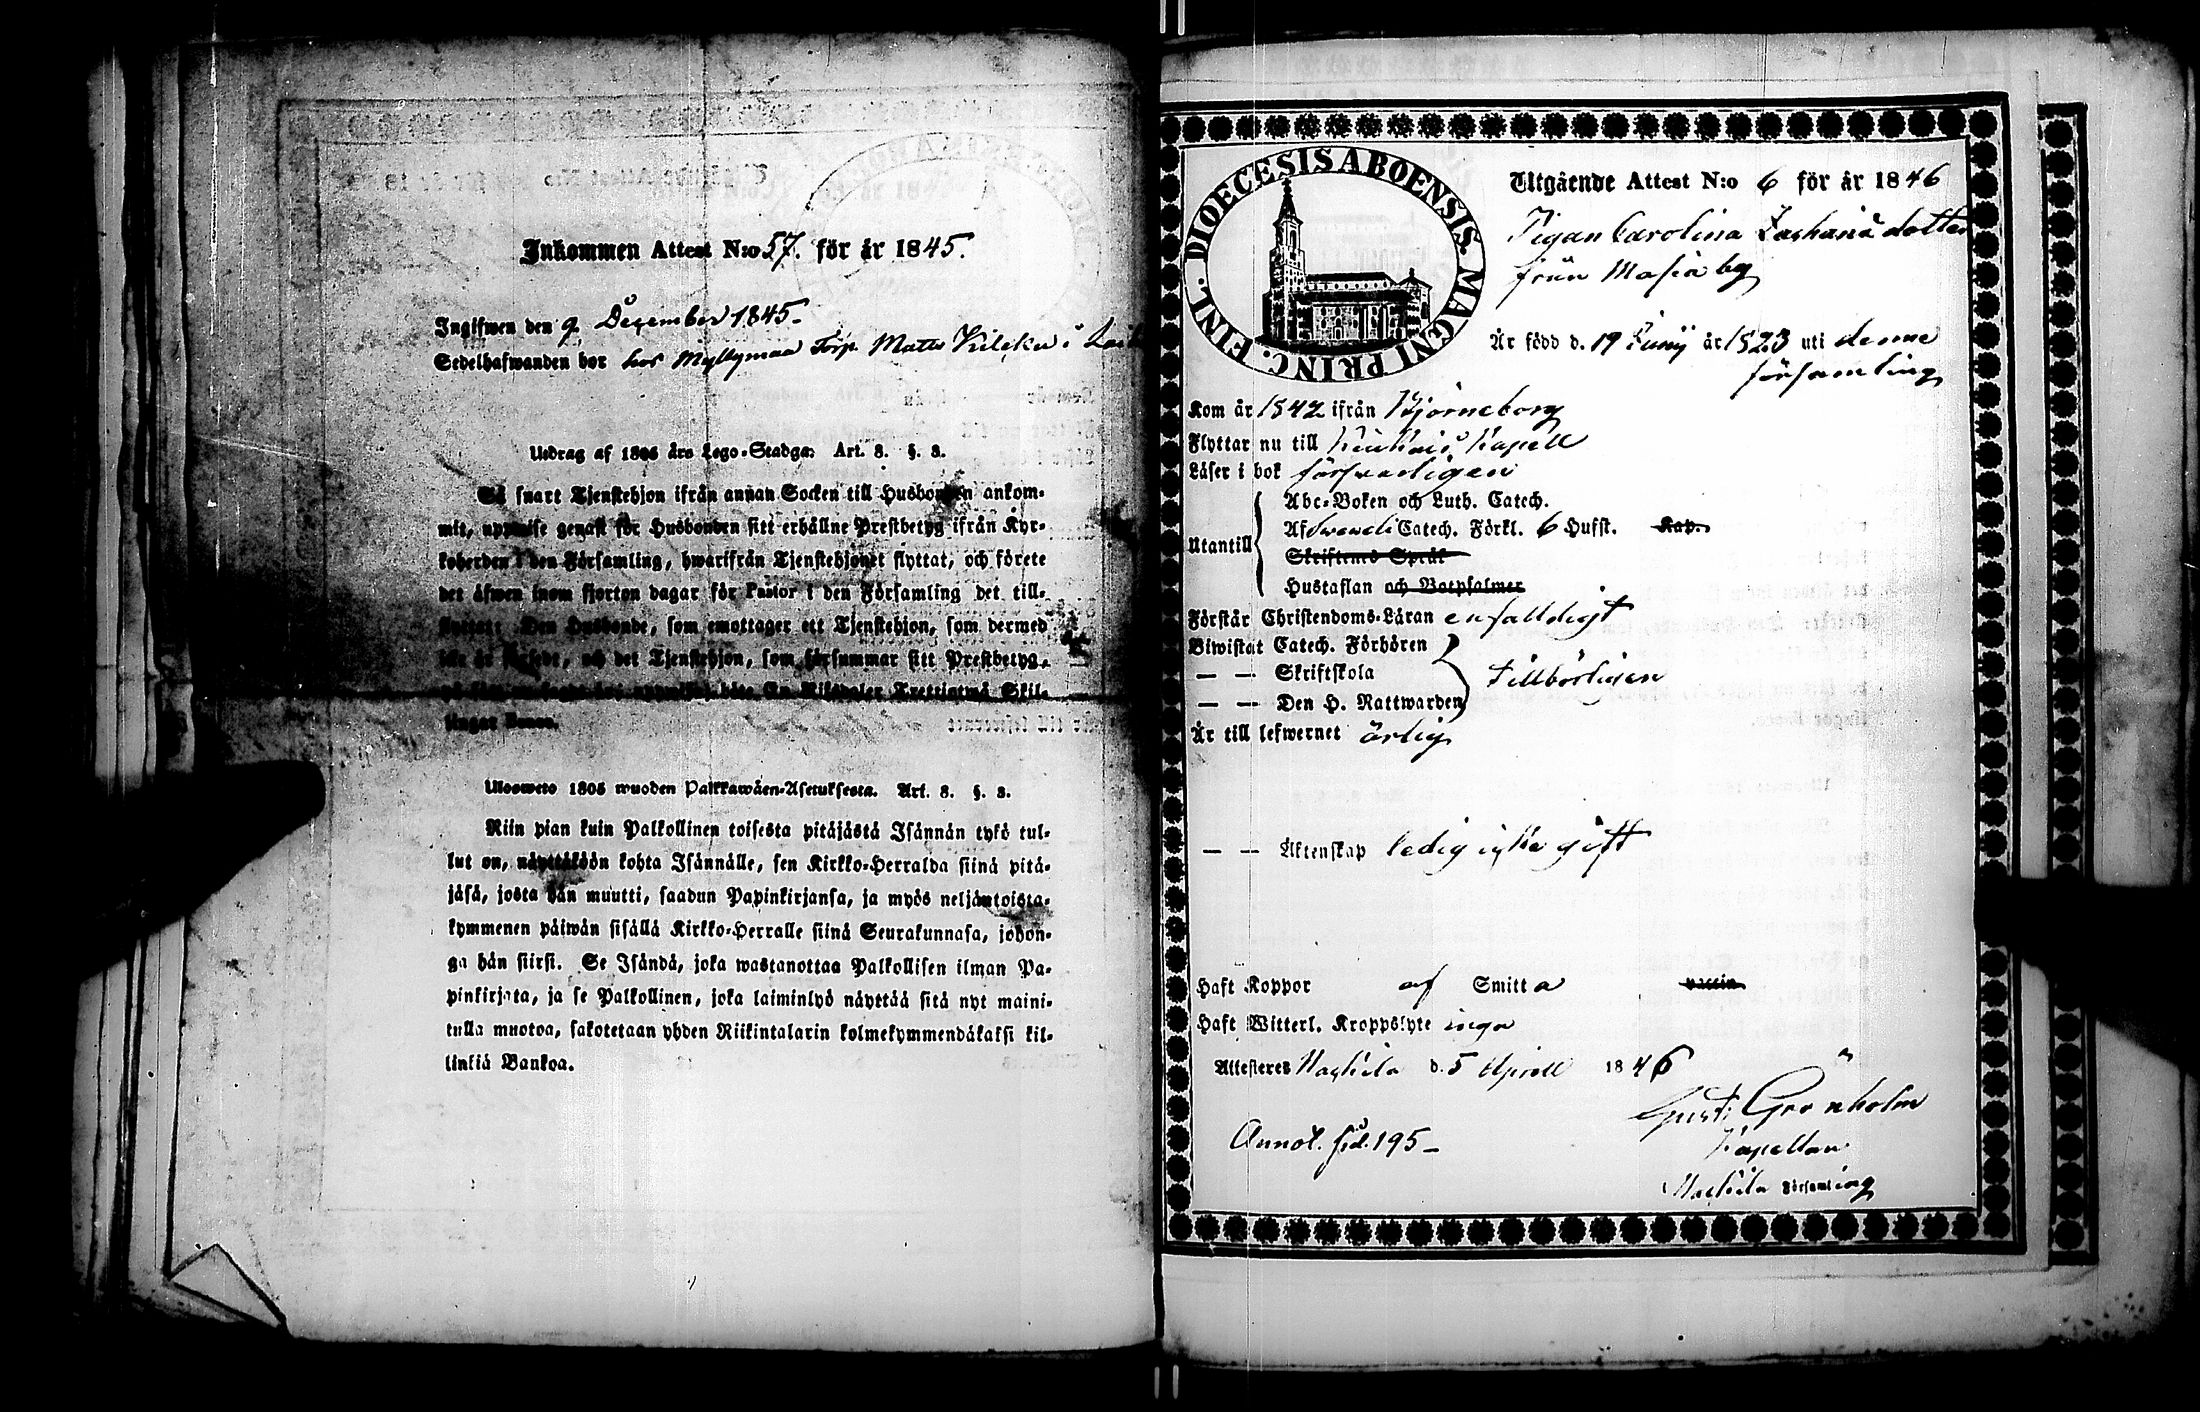 Inkommen Attest N:o 57. för år 1845.
Ingifwen den 9 December 1845.
Sedelhafwanden bor hos Myllymaa Torp. Matts
Utdrag af 1805 års Lego-Stadga: Art. 8. §. 3.
Så snart Tjenstehjon ifrån annan Socken till Husbonden ankom-
mit, uppwise genast för Husbonden sitt erhållne Prestbetyg ifrån Kyr-
koherden i den Församling, hwarifrån Tjenstehjonet flyttat, och förete
det äfwen inom fjorton dagar för Pastor i den Församling det till-
flyttat: Den Husbonde, som emottager ett Tjenstehjon, som dermed
icke är försedt, och det Tjenstehjon, som försummar sitt Prestbetyg,
En Riksdaler Trettiotwå Skil-
lingar Banco.
Ulosweto 1805 wuoden Palkkawäen-Asetuksesta. Art. 8. §. 3.
Niin pian kuin Palkollinen toisesta pitäjästä Isännän tykö tul-
lut on, näyttäköön kohta Isännälle, sen Kirkko-Herralda siinä pitä-
jäsä, josta hän muutti, saadun Papinkirjansa, ja myös neljäntoista-
kymmenen päiwän sisällä Kirkko-Herralle siinä Seurakunnasa, johon-
ga hän siirsi. Se Isändä, joka wastanottaa Palkollisen ilman Pa-
pinkirjata, ja se Palkollinen, joka laiminlyö näyttää sitä nyt maini-
tulla muotoa, sakotetaan yhden Riikintalarin kolmekymmendäkaksi kil-
linkiä Bankoa.
DIOECESIS ABOENSIS. MAGNI PRINC. FINL.
Utgående Attest N:o 6 för år 1846
Pigan Carolina Zachariædotter
från Masia by
Är född d. 19 Junij år 1823 uti denne
församling
Kom år 1842 ifrån Björneborg
Flyttar nu till Kiukais Kapell
Läser i bok försvarligen
Abc-Boken och Luth. Catech.
Utantill Af Catech. Förkl. 6 Hufst. Kap.
Skriftenes Språk
Hustaflan och Botpsalmer
Förstår Christendoms-Läran enfalldigt
Biwistat Catech. Förhören
— — Skriftskola Tillbörligen
— — Den H. Nattwarden
Är till lefwernet ärlig
— — Äktenskap ledig icke gift
Haft Koppor af Smitta vaccin
Haft Witterl. Kroppslyte inga
Attesteres Nackila d. 5 Aprill 1846
Gust: Grönholm
Annot. sid. 195 –
Kapellan
Nackila Församling